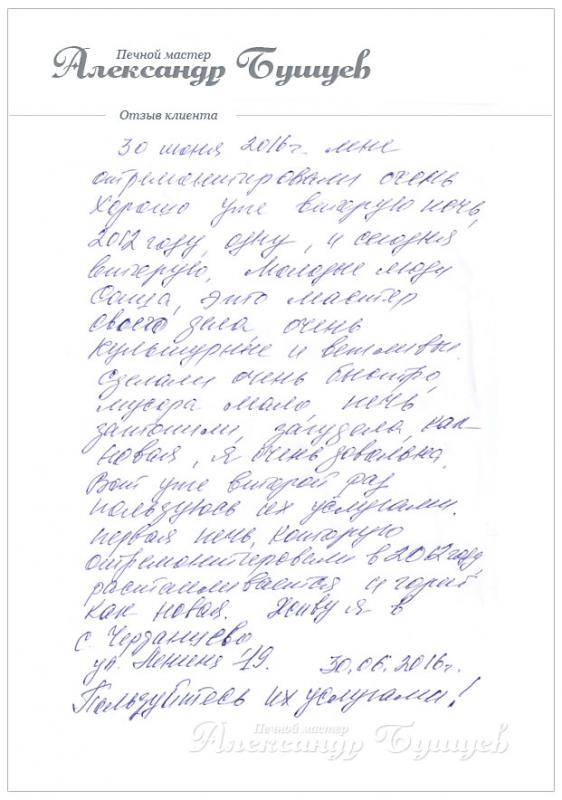 Печной мастер
Александр Бушуев
Отзыв клиента
30 июня 2016г. мне
отремонтировали очень
хорошо уже вторую печь,
2012 году, одну, и сегодня
вторую, Молодые люди
Саша, это мастер
своего дела, очень
культурные и вежливы.
Сделали очень быстро,
мусора мало, печь
затопили, загудела, как
новая, я очень довольна,
Вот уже второй раз
пользуюсь их услугами.
первая печь, которую
отремонтировали в 2012 году,
растапливается и горит
как новая. Живу я в
с. Черданцево
ул. Ленина 19. 30.06.2016г.
Пользуйтесь их услугами!
Печной мастер
Александр Бушуев